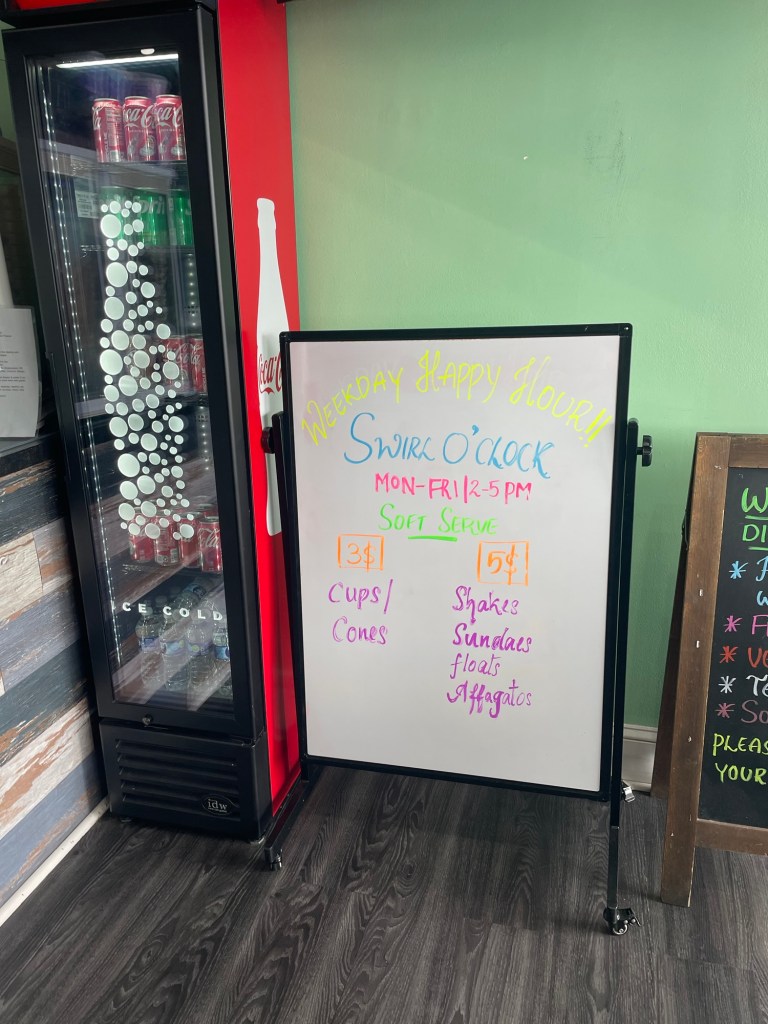 WEEKDAY HAPPY HOUR!!
SWIRL O'CLOCK
MON-FRI|2-5 PM
SOFT SERVE
3$
Cups/
Cones
5$
Shakes
Sundaes
floats
Affagatos
Coca-Cola
ICE COLD
idw
PLEAS
YOUR